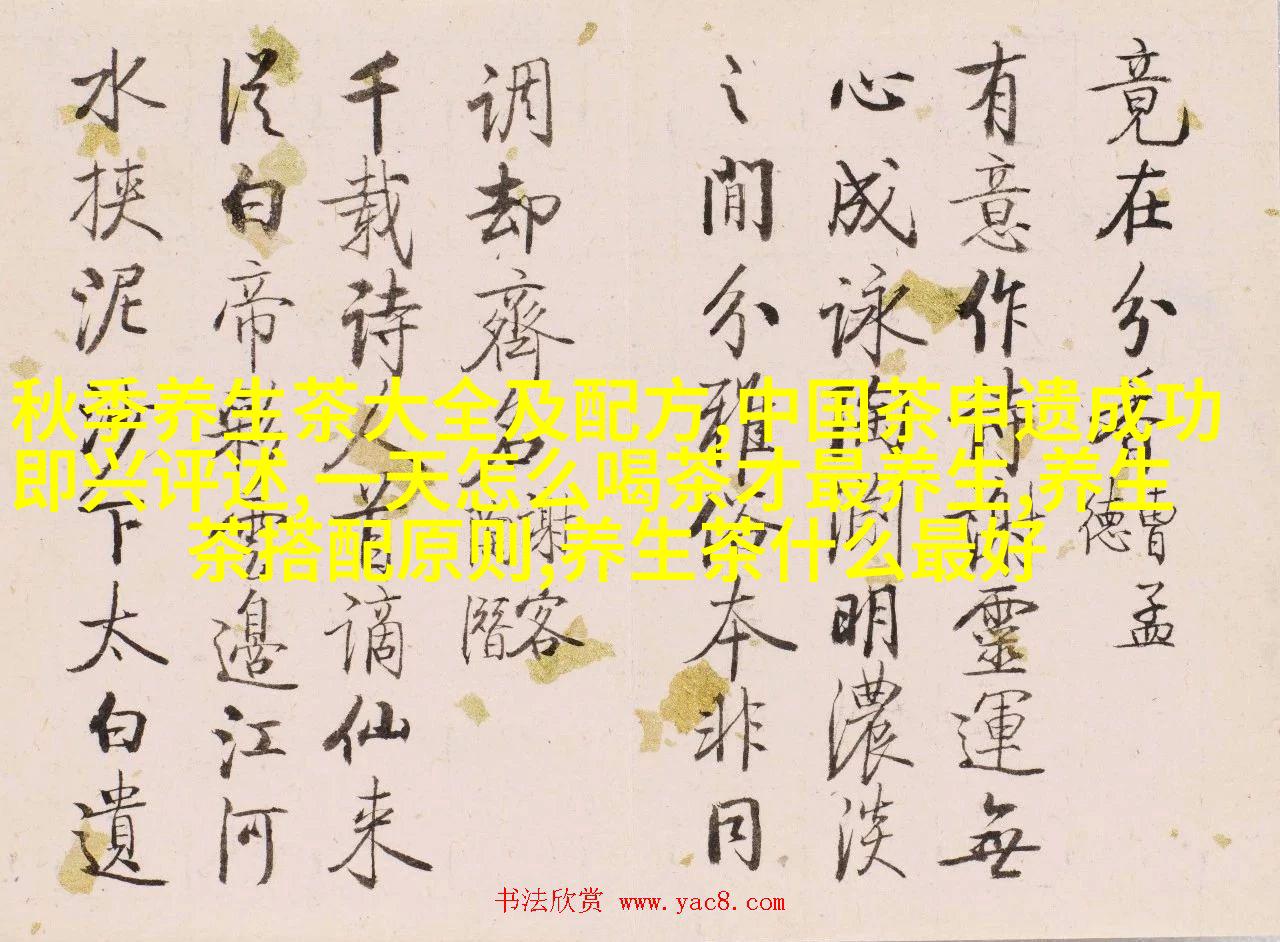 竟在分香
曹孟
德
有意作詩謝靈運無
心成詠陶淵明濃淡
之間分雅俗本非同
调却齊名
謝客
潛
千载诗人首謫仙来
從白帝彩雲邊江河
水挾泥沙下太白遺
秋季养生茶大全及配方,中国茶申遗成功
即兴评述,一天怎么喝茶才最养生,养生
茶搭配原则,养生茶什么最好
书法欣赏 www.yac8.com